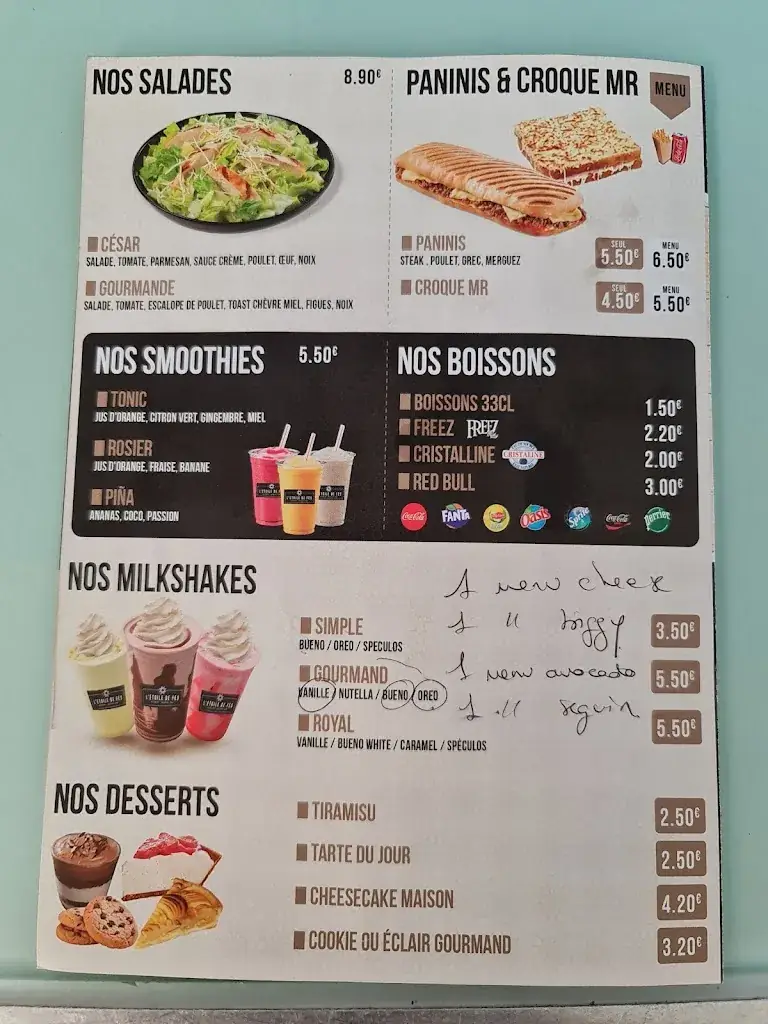 NOS SALADES 8.90€
CÉSAR
SALADE, TOMATE, PARMESAN, SAUCE CRÈME, POULET, ŒUF, NOIX
GOURMANDE
SALADE, TOMATE, ESCALOPE DE POULET, TOAST CHÈVRE MIEL, FIGUES, NOIX
PANINIS & CROQUE MR MENU
PANINIS SEUL 5.50€ MENU 6.50€
STEAK, POULET, GREC, MERGUEZ
CROQUE MR SEUL 4.50€ MENU 5.50€
NOS SMOOTHIES 5.50€
TONIC
JUS D'ORANGE, CITRON VERT, GINGEMBRE, MIEL
ROSIER
JUS D'ORANGE, FRAISE, BANANE
PIÑA
ANANAS, COCO, PASSION
NOS BOISSONS
BOISSONS 33CL 1.50€
FREEZ FREEZ 2.20€
CRISTALLINE CRISTALINE 2.00€
RED BULL 3.00€
Coca-Cola FANTA Lipton Oasis Sprite Coca-Cola Perrier
NOS MILKSHAKES
1 menu cheez
1 " biggy
1 menu avocado
1 " seguin
SIMPLE 3.50€
BUENO / OREO / SPECULOS
GOURMAND 5.50€
VANILLE / NUTELLA / BUENO / OREO
ROYAL 5.50€
VANILLE / BUENO WHITE / CARAMEL / SPÉCULOS
NOS DESSERTS
TIRAMISU 2.50€
TARTE DU JOUR 2.50€
CHEESECAKE MAISON 4.20€
COOKIE OU ÉCLAIR GOURMAND 3.20€